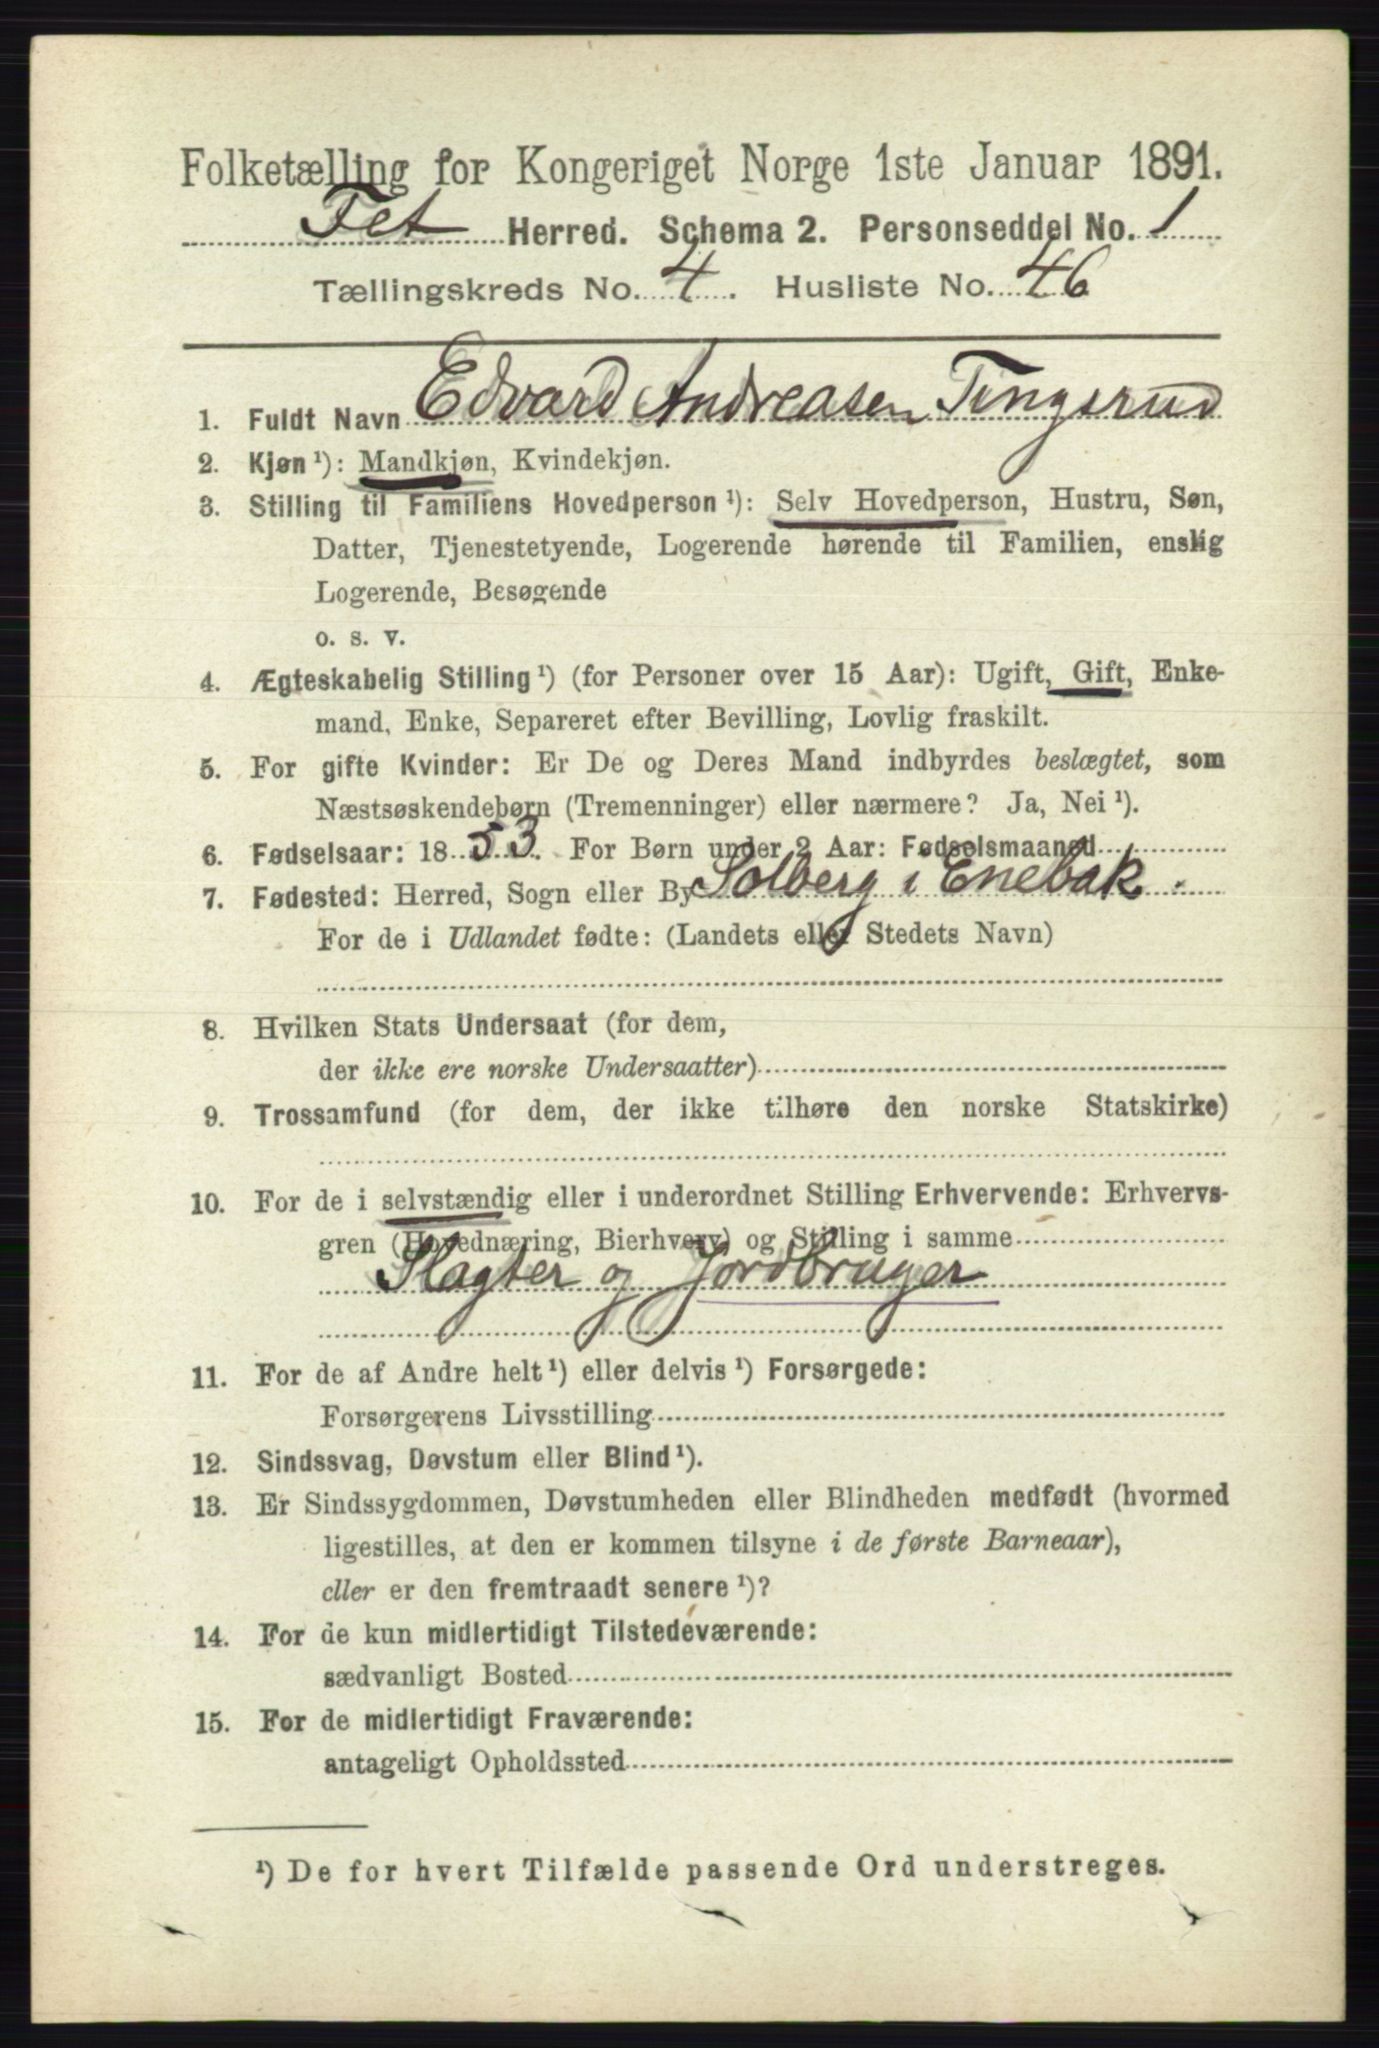 Folketælling for Kongeriget Norge 1ste Januar 1891.
Fet Herred. Schema 2. Personseddel No. 1
Tællingskreds No. 4. Husliste No. 46
1. Fuldt Navn Edvard Andreasen Tingsrud
2. Kjøn¹): Mandkjøn, Kvindekjøn.
3. Stilling til Familiens Hovedperson¹): Selv Hovedperson, Hustru, Søn,
Datter, Tjenestetyende, Logerende hørende til Familien, enslig
Logerende, Besøgende
o. s. v.
4. Ægteskabelig Stilling¹) (for Personer over 15 Aar): Ugift, Gift, Enke-
mand, Enke, Separeret efter Bevilling, Lovlig fraskilt.
5. For gifte Kvinder: Er De og Deres Mand indbyrdes beslægtet, som
Næstsøskendebørn (Tremenninger) eller nærmere? Ja, Nei¹).
6. Fødselsaar: 1853. For Børn under 2 Aar: Fødselsmaaned
7. Fødested: Herred, Sogn eller By Solberg i Enebak.
For de i Udlandet fødte: (Landets eller Stedets Navn)
8. Hvilken Stats Undersaat (for dem,
der ikke ere norske Undersaatter)
9. Trossamfund (for dem, der ikke tilhøre den norske Statskirke)
10. For de i selvstændig eller i underordnet Stilling Erhvervende: Erhvervs-
gren (Hovednæring, Bierhverv) og Stilling i samme
Slagter og Jordbruger
11. For de af Andre helt¹) eller delvis¹) Forsørgede:
Forsørgerens Livsstilling
12. Sindssvag, Døvstum eller Blind¹).
13. Er Sindssygdommen, Døvstumheden eller Blindheden medfødt (hvormed
ligestilles, at den er kommen tilsyne i de første Barneaar),
eller er den fremtraadt senere¹)?
14. For de kun midlertidigt Tilstedeværende:
sædvanligt Bosted
15. For de midlertidigt Fraværende:
antageligt Opholdssted
¹) De for hvert Tilfælde passende Ord understreges.